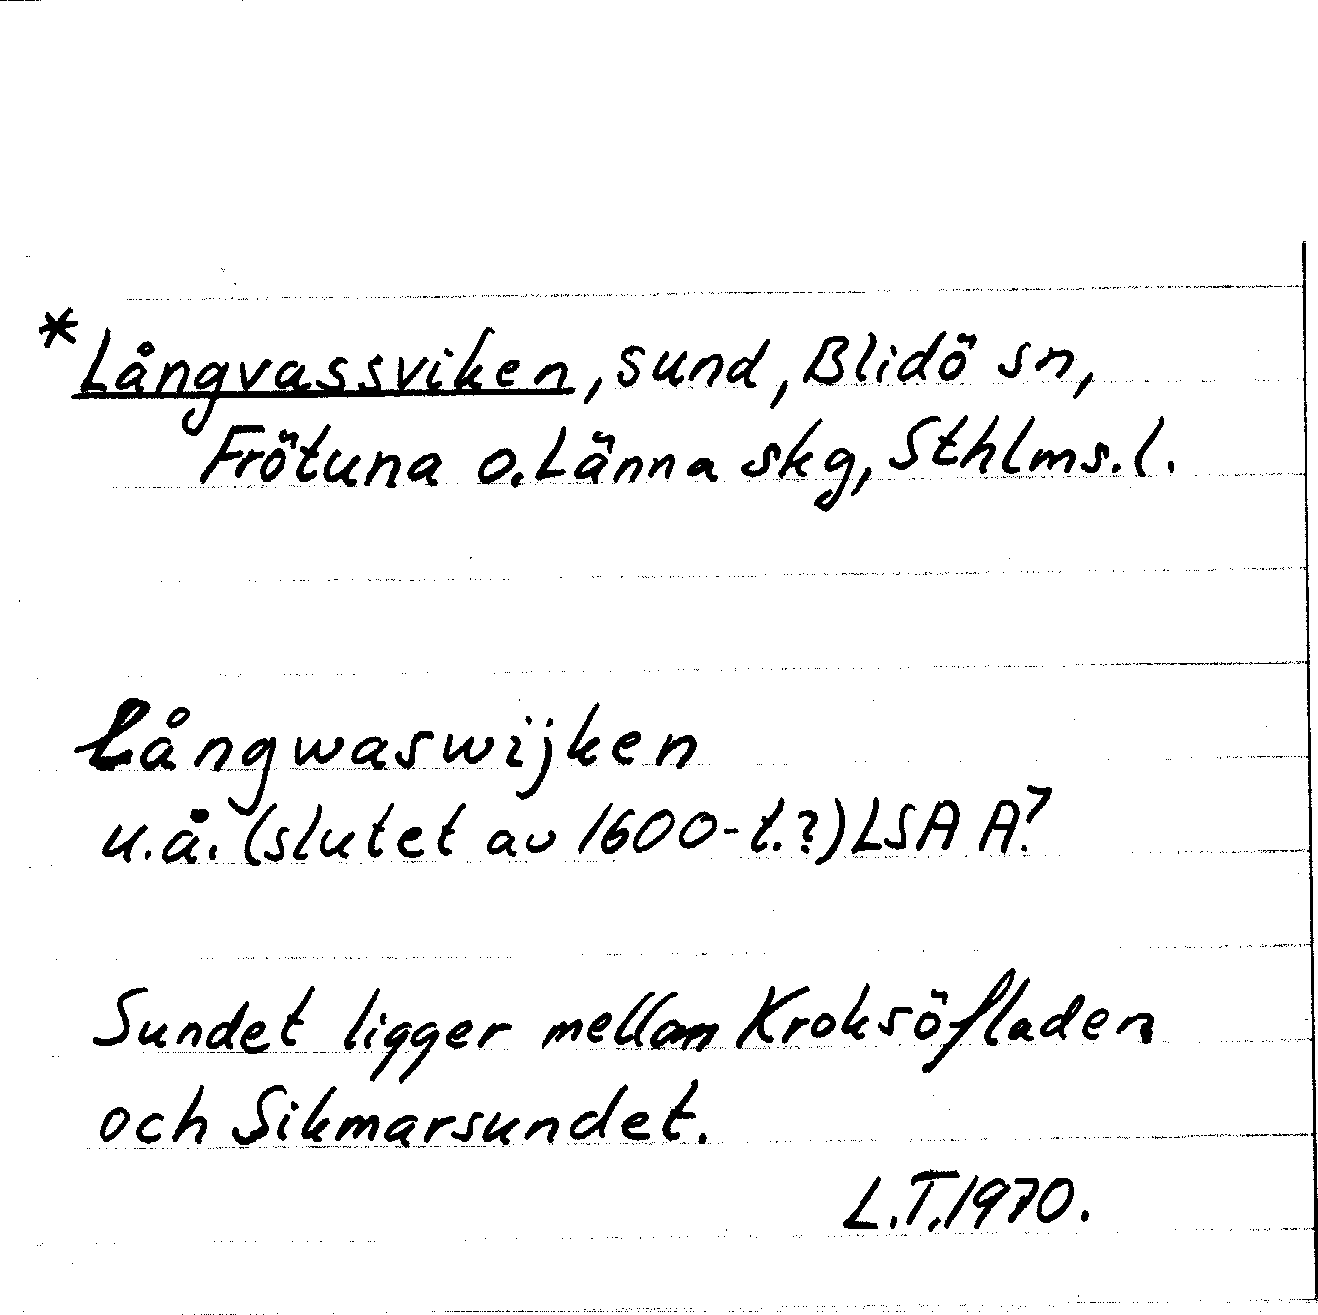 *Långvassviken, sund, Blidö sn,
Frötuna o. Länna skg, Sthlms. l.
Långwaswijken
u.å. (slutet av 1600-t.?) LSA A?
Sundet ligger mellan Kroksöfladen
och Sikmarsundet.
L.T. 1970.